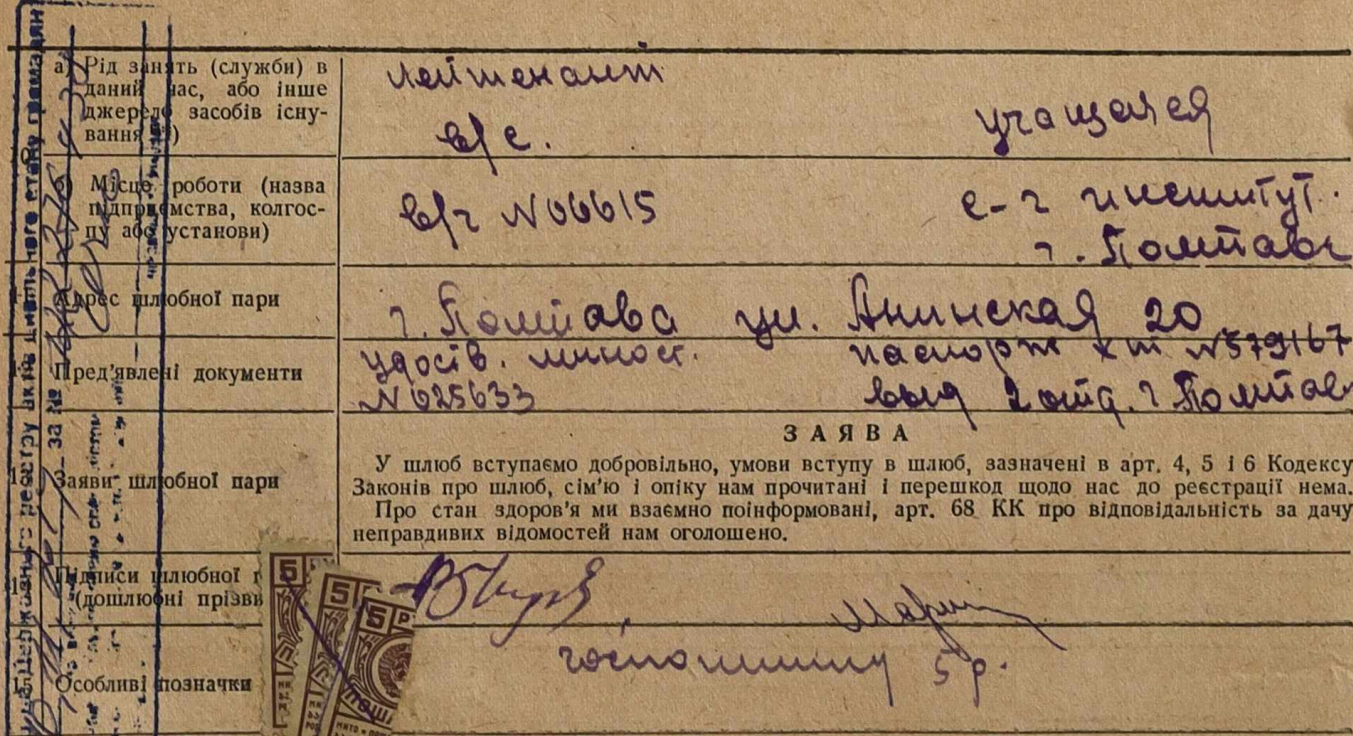 а) Рід занять (служби) в
даний час, або інше
джерело засобів існу-
вання
лейтенант
в/с.
учащаяся
Місце роботи (назва
підприємства, колгос-
пу або установи)
в/ч №06615
с-г институт.
г. Полтава
Адрес шлюбної пари
г. Полтава ул. Анинская 20
Пред'явлені документи
удосів. личност.
№025633
паспорт №579167
выд 2 отд. г Полтав
Заяви шлюбної пари
ЗАЯВА
У шлюб вступаємо добровільно, умови вступу в шлюб, зазначені в арт. 4, 5 і 6 Кодексу
Законів про шлюб, сім'ю і опіку нам прочитані і перешкод щодо нас до реєстрації нема.
Про стан здоров'я ми взаємно поінформовані, арт. 68 КК про відповідальність за дачу
неправдивих відомостей нам оголошено.
Підписи шлюбної
(дошлюбні прізв
5
5
5 Р
госпошлину 5 р.
Особливі позначки
Державного реєстру актів цивільного стану громадян
за №